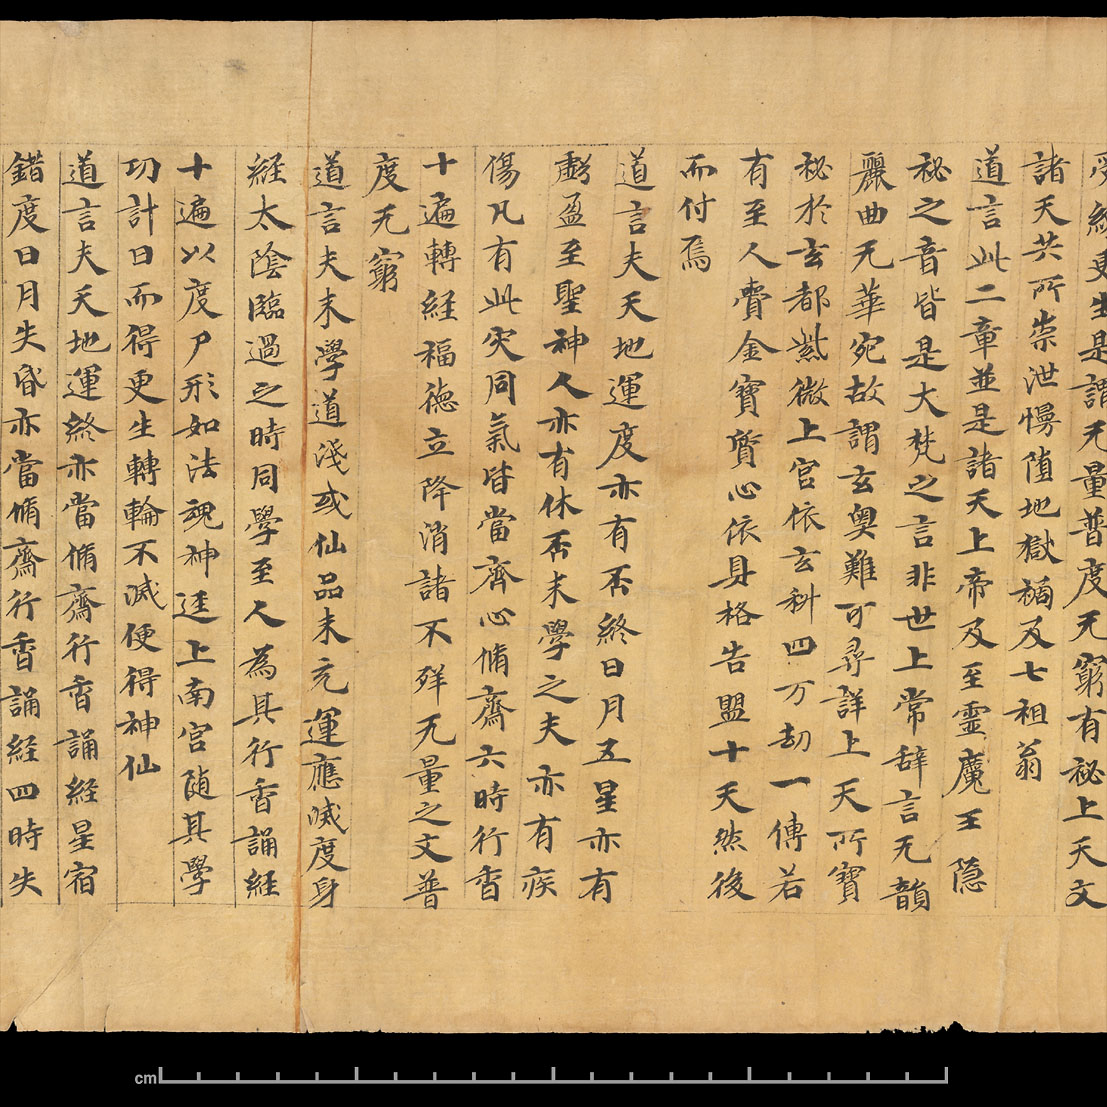 受経更生是謂无量普度无窮有秘上天文
諸天共所崇泄慢墮地獄禍及七祖翁
道言此二章並是諸天上帝及至靈魔王隱
秘之音皆是大梵之言非世上常辞言无韻
麗曲无華宛故謂玄奧難可尋詳上天所寶
秘於玄都紫微上宮依玄科四万劫一傳若
有至人賷金寶質心依具格告盟十天然後
而付焉
道言夫天地運度亦有否終日月五星亦有
虧盈至聖神人亦有休否末學之夫亦有疾
傷凡有此灾同氣皆當齊心脩齋六時行香
十遍轉経福德立降消諸不祥无量之文普
度无窮
道言夫末學道淺或仙品未充運應滅度身
経太陰臨過之時同學至人為其行香誦経
十遍以度尸形如法魂神逕上南宮随其學
功計日而得更生轉輪不滅便得神仙
道言夫天地運終亦當脩齋行香誦経星宿
錯度日月失昏亦當脩齋行香誦経四時失